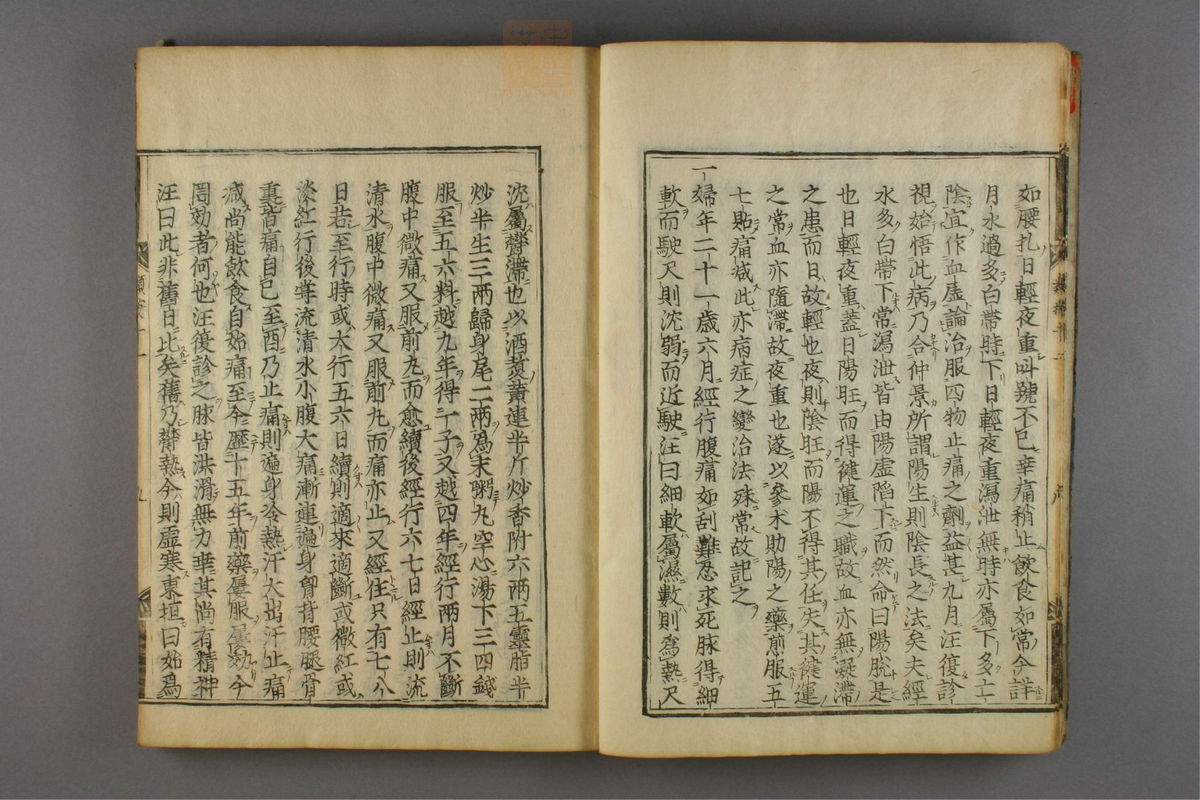 如腰扎日輕夜重叫號不已幸痛稍止飲食如常今詳
月水過多白帶時下日輕夜重瀉泄無時亦屬下多亡
陰宜作血虛論治服四物止痛之劑益甚九月汪復診
視始悟此病乃合仲景所謂陽生則陰長之法矣夫經
水多白帶下常瀉泄皆由陽虛陷下而然命曰陽脫是
也日輕夜重蓋日陽旺而得健運之職故血亦無凝滯
之患而日故輕也夜則陰旺而陽不得其任失其健運
之常血亦隨滯故夜重也遂以參朮助陽之藥煎服五
七貼痛减此亦病症之變治法殊常故記之
一婦年二十一歲六月經行腹痛如刮難忍求死脉得細
軟而駛尺則沈弱而近駛汪曰細軟屬濕數則爲熱尺
沈屬鬱滯也以酒煑黃連半斤炒香附六兩五靈脂半
炒半生三兩歸身尾二兩爲末粥丸空心湯下三四錢
服至五六料越九年得一子又越四年經行兩月不斷
腹中微痛又服前丸而愈續後經行六七日經止則流
清水腹中微痛又服前丸而痛亦止又經住只有七八
日若至行時或大行五六日續則適來適斷或微紅或
淡紅行後常流清水小腹大痛漸連遍身胷背腰腿骨
裏皆痛自巳至酉乃止痛則遍身冷熱汗大出汗止痛
减尚能飲食自始痛至今歷十五年前藥屢服屢効今
罔効者何也汪復診之脉皆洪滑無力幸其尚有精神
汪曰此非舊日比矣舊乃鬱熱今則虛寒東垣曰始爲